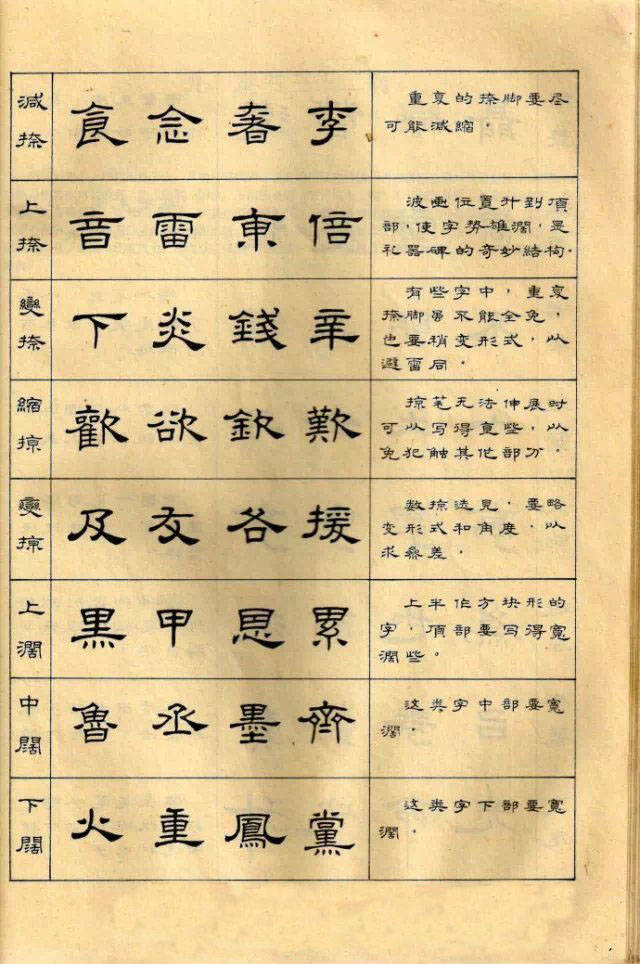 減捺
食 念 奢 李
重复的捺脚要尽
可能减縮．
上捺
音 雷 東 倍
波画位置升到頂
部，使字势雄濶，是
礼器碑的奇妙結构．
變捺
下 炎 錢 辛
有些字中，重复
捺脚虽不能全免，
也要稍变形式，以
避雷同．
縮掠
歡 欲 欽 歎
掠笔无法伸展，时
可以写得直些，以
免犯触其他部分．
變掠
及 友 各 援
数掠迭見，要略
变形式和角度，以
求叅差．
上濶
黑 甲 思 累
上半作方块形的
字，頂部要写得寬
濶些。
中闊
魯 丞 墨 齊
这类字中部要寬
濶．
下闊
火 重 鳳 黨
这类字下部要寬
濶．